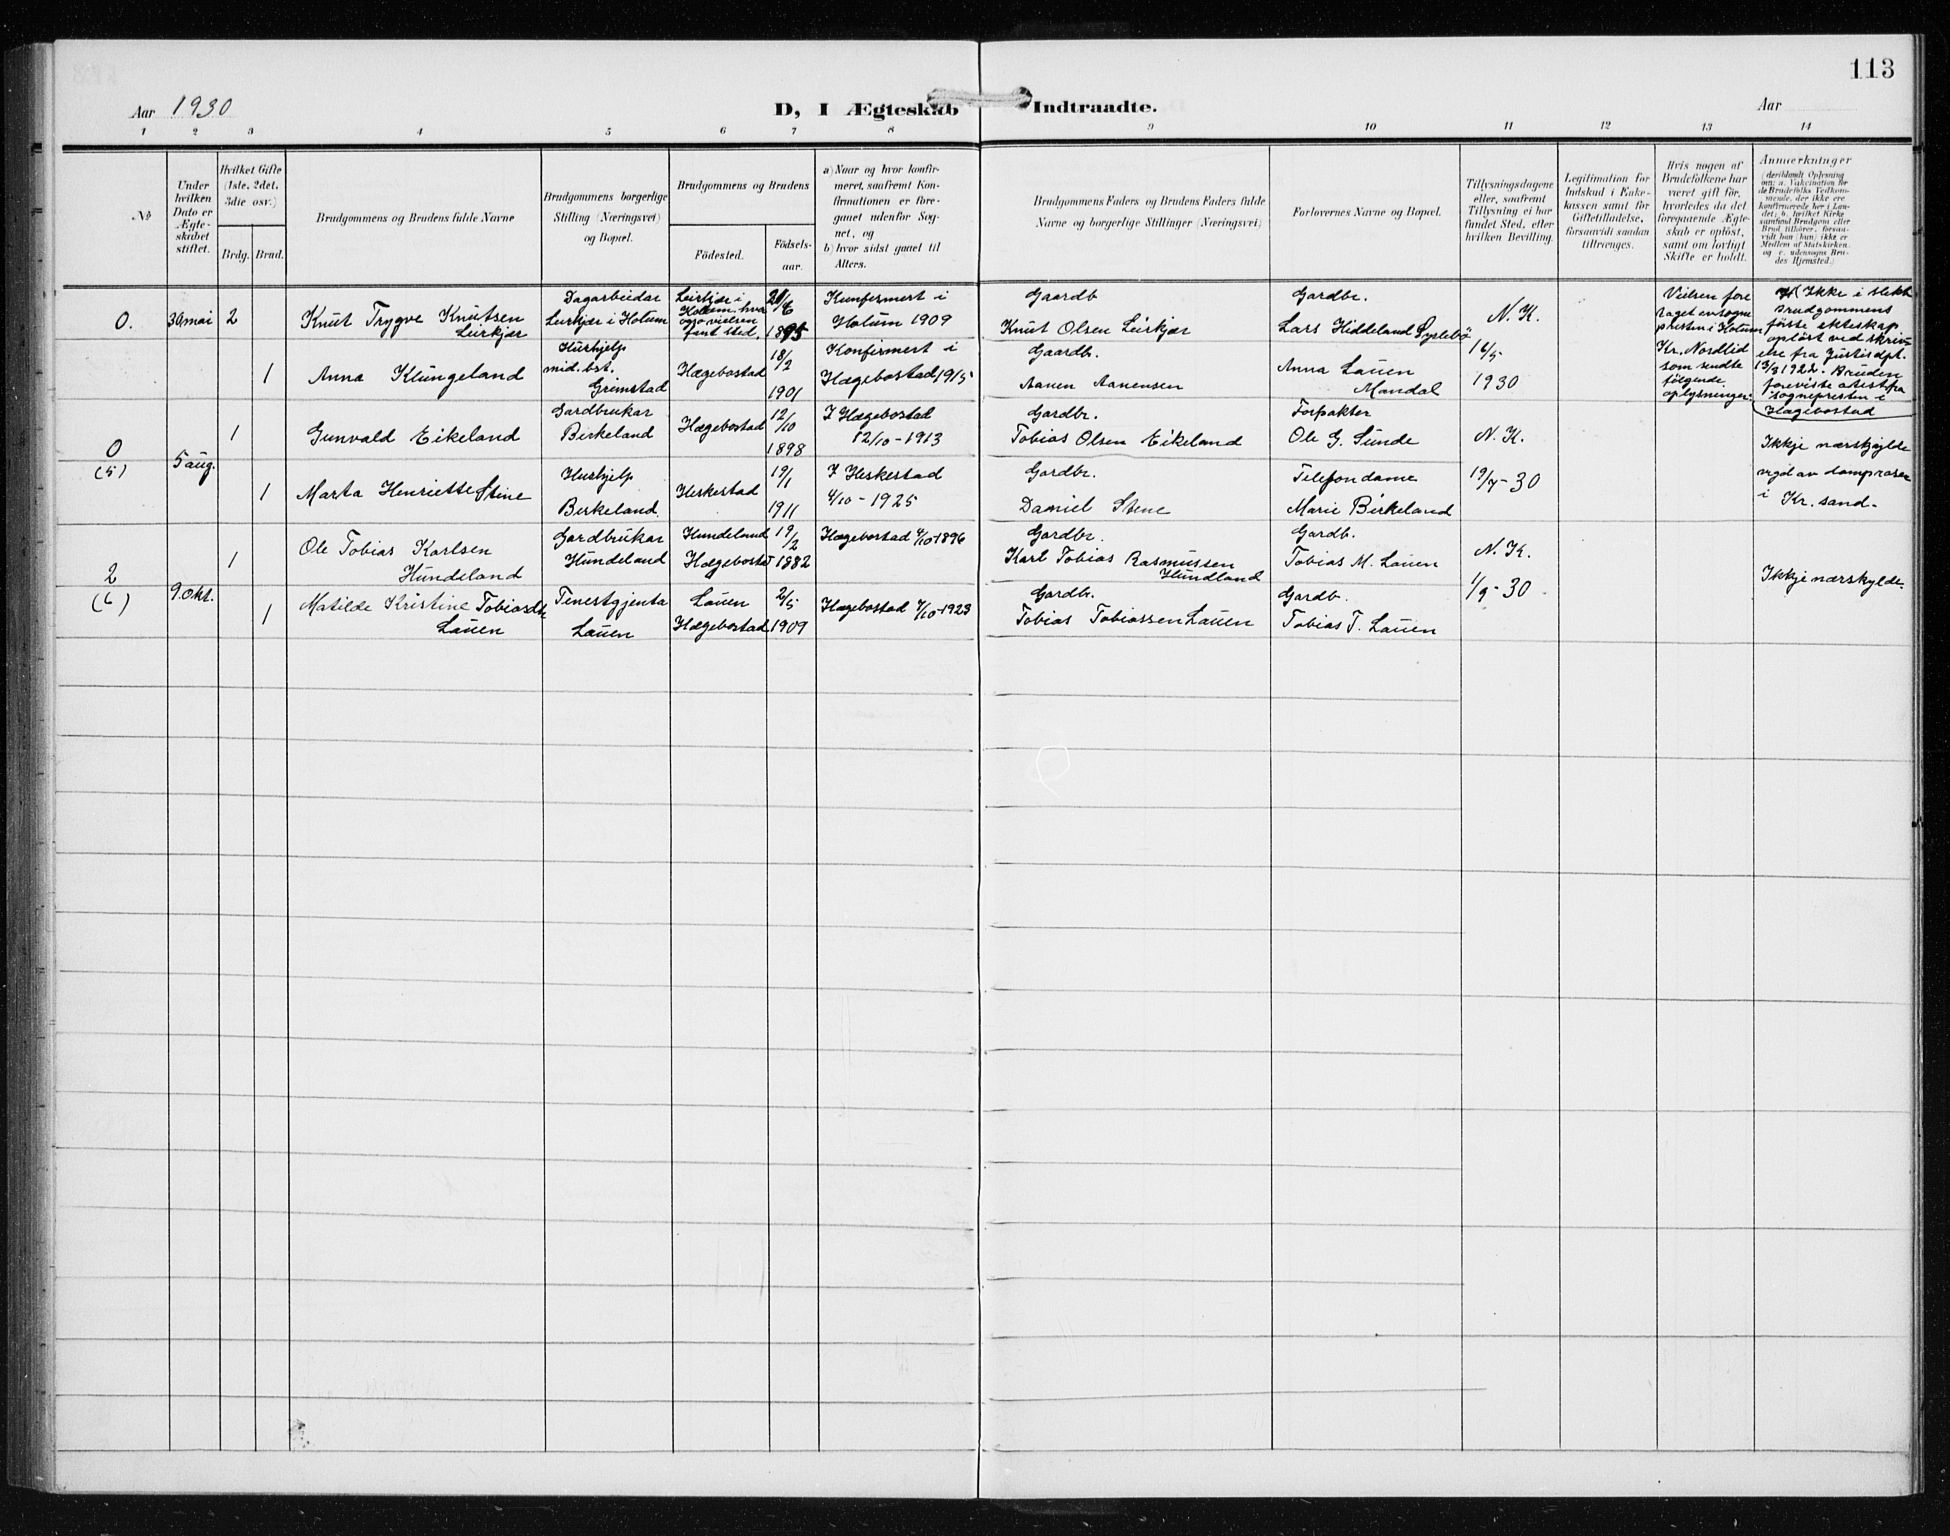 113
Aar 1930
D, I Ægteskab Indtraadte.
Aar
1 2 3 4 5 6 7 8 9 10 11 12 13 14
No
Under hvilken Dato er Ægteskabet stiftet.
Hvilket Gifte (1ste, 2det, 3die osv.)
Brdg. Brud.
Brudgommens og Brudens fulde Navne
Brudgommens borgerlige Stilling (Næringsvei) og Bopæl.
Brudgommens og Brudens
Födested.
Födselsaar.
a) Naar og hvor konfirmeret, saafremt Konfirmationen er foregaaet udenfor Sognet, og
b) hvor sidst gaaet til Alters.
Brudgommens Faders og Brudens Faders fulde Navne og borgerlige Stillinger (Næringsvei)
Forlovernes Navne og Bopæl.
Tillysningsdagene eller, saafremt Tillysning ei har fundet Sted, efter hvilken Bevilling.
Legitimation for Indskud i Enkekassen samt for Giftetilladelse, forsaavidt saadan tiltrænges.
Hvis nogen af Brudefolkene har været gift før, hvorledes da det foregaaende Ægteskab er opløst, samt om lovligt Skifte er holdt.
Anmærkninger
(deriblandt Oplysning om: a. Vakcination for de Brudefolks Vedkommende, der ikke ere konfirmerede her i Landet; b. hvilket Kirkesamfund Brudgom eller Brud tilhører, forsaavidt han (hun) ikke er Medlem af Statskirken, og c. udensogns Brudes Hjemsted.)
0. 30 mai 2
Knut Trygve Knutsen
Leirkjær
Dagarbeidar
Leirkjær i Holum
Leirkjær i
Holum. hvor
også vielsen
fant sted.
1895
Konfirmert i
Holum 1909
Gaardb
Knut Olsen Leirkjær
Gardbr.
Lars Hiddeland Syslebö
N. K.
16/5
1930
Vielsen fore
taget av sogne
presten i Holum
Kr. Nordlid
som sendte
følgende
oplysninger:
Ikke i slekt
Brudgommens
første ekteskap
opløst ved skriv
else fra Justisdpt.
13/3 1922. Bruden
foreviste attest fra
sognepresten i
Hægebostad
1
Anna Klungeland
Hushjelp
mid. bst.
Grimstad
Hægebostad
18/2
1901
Konfermert i
Hægebostad, 1915
Gaardbr.
Aanen Aanensen
Anna Lauen
Mandal
0
(5)
5 aug.
1
Gunvald Eikeland
Gardbrukar
Birkeland
Hægebostad
12/10
1898
I Hægebostad
12/10 - 1913
Gardbr.
Tobias Olsen Eikeland
Forpakter
Ole G. Sunde
N. K.
19/7 - 30
Ikkje nærskylde
vigd av domprosen
i Kr. sand.
1
Marta Henriette Stine
Hushjelp
Birkeland.
Heskestad
19/1
1911
I Heskestad
4/10 - 1925
Gardbr.
Daniel Stene
Telefondame
Marie Birkeland
2
(6)
9. okt.
1
Ole Tobias Karlsen
Hundeland
Gardbrukar
Hundeland
Hundeland
Hægebostd
19/2
1882
Hægebostad 4/10 1896
Gardbr.
Karl Tobias Rasmussen
Hundland
Gardb.
Tobias M. Lauen
N. K.
1/9 - 30
Ikkje nærskylde.
1
Matilde Kristine Tobiasdtr
Lauen
Tenestgjenta
Lauen
Lauen
Hægebostad
2/5
1909
Hægebostad 7/10-1923
Gardbr.
Tobias Tobiassen Lauen
Gardb.
Tobias T. Lauen